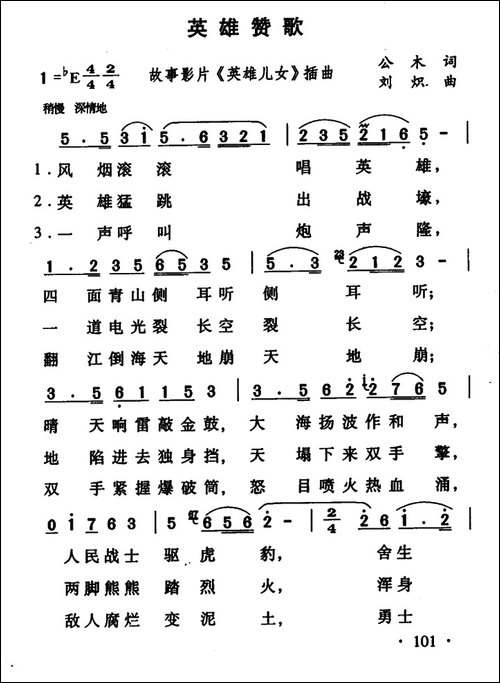 英雄赞歌
1=♭E 4/4 2/4
故事影片《英雄儿女》插曲
公木 词
刘炽 曲
稍慢 深情地
5·5 3i | 5·6 321 | 5·3 535 2165 - |
1.风烟滚滚 唱英雄,
2.英雄猛跳 出战壕,
3.一声呼叫 炮声隆,
1·235 6535 | 5·3 2123 - |
四面青山侧耳听侧 耳听;
一道电光裂长空裂 长空;
翻江倒海天地崩天 地崩;
3·561153 | 3·562 2765 |
晴天响雷敲金鼓,大海扬波作和声,
地陷进去独身挡,天塌下来双手擎,
双手紧握爆破筒,怒目喷火热血涌,
0i763 | 5 6562 - | 2/4 26 1·2 |
人民战士 驱虎豹, 舍生
两脚熊熊 踏烈火, 浑身
敌人腐烂 变泥土, 勇士
·101·